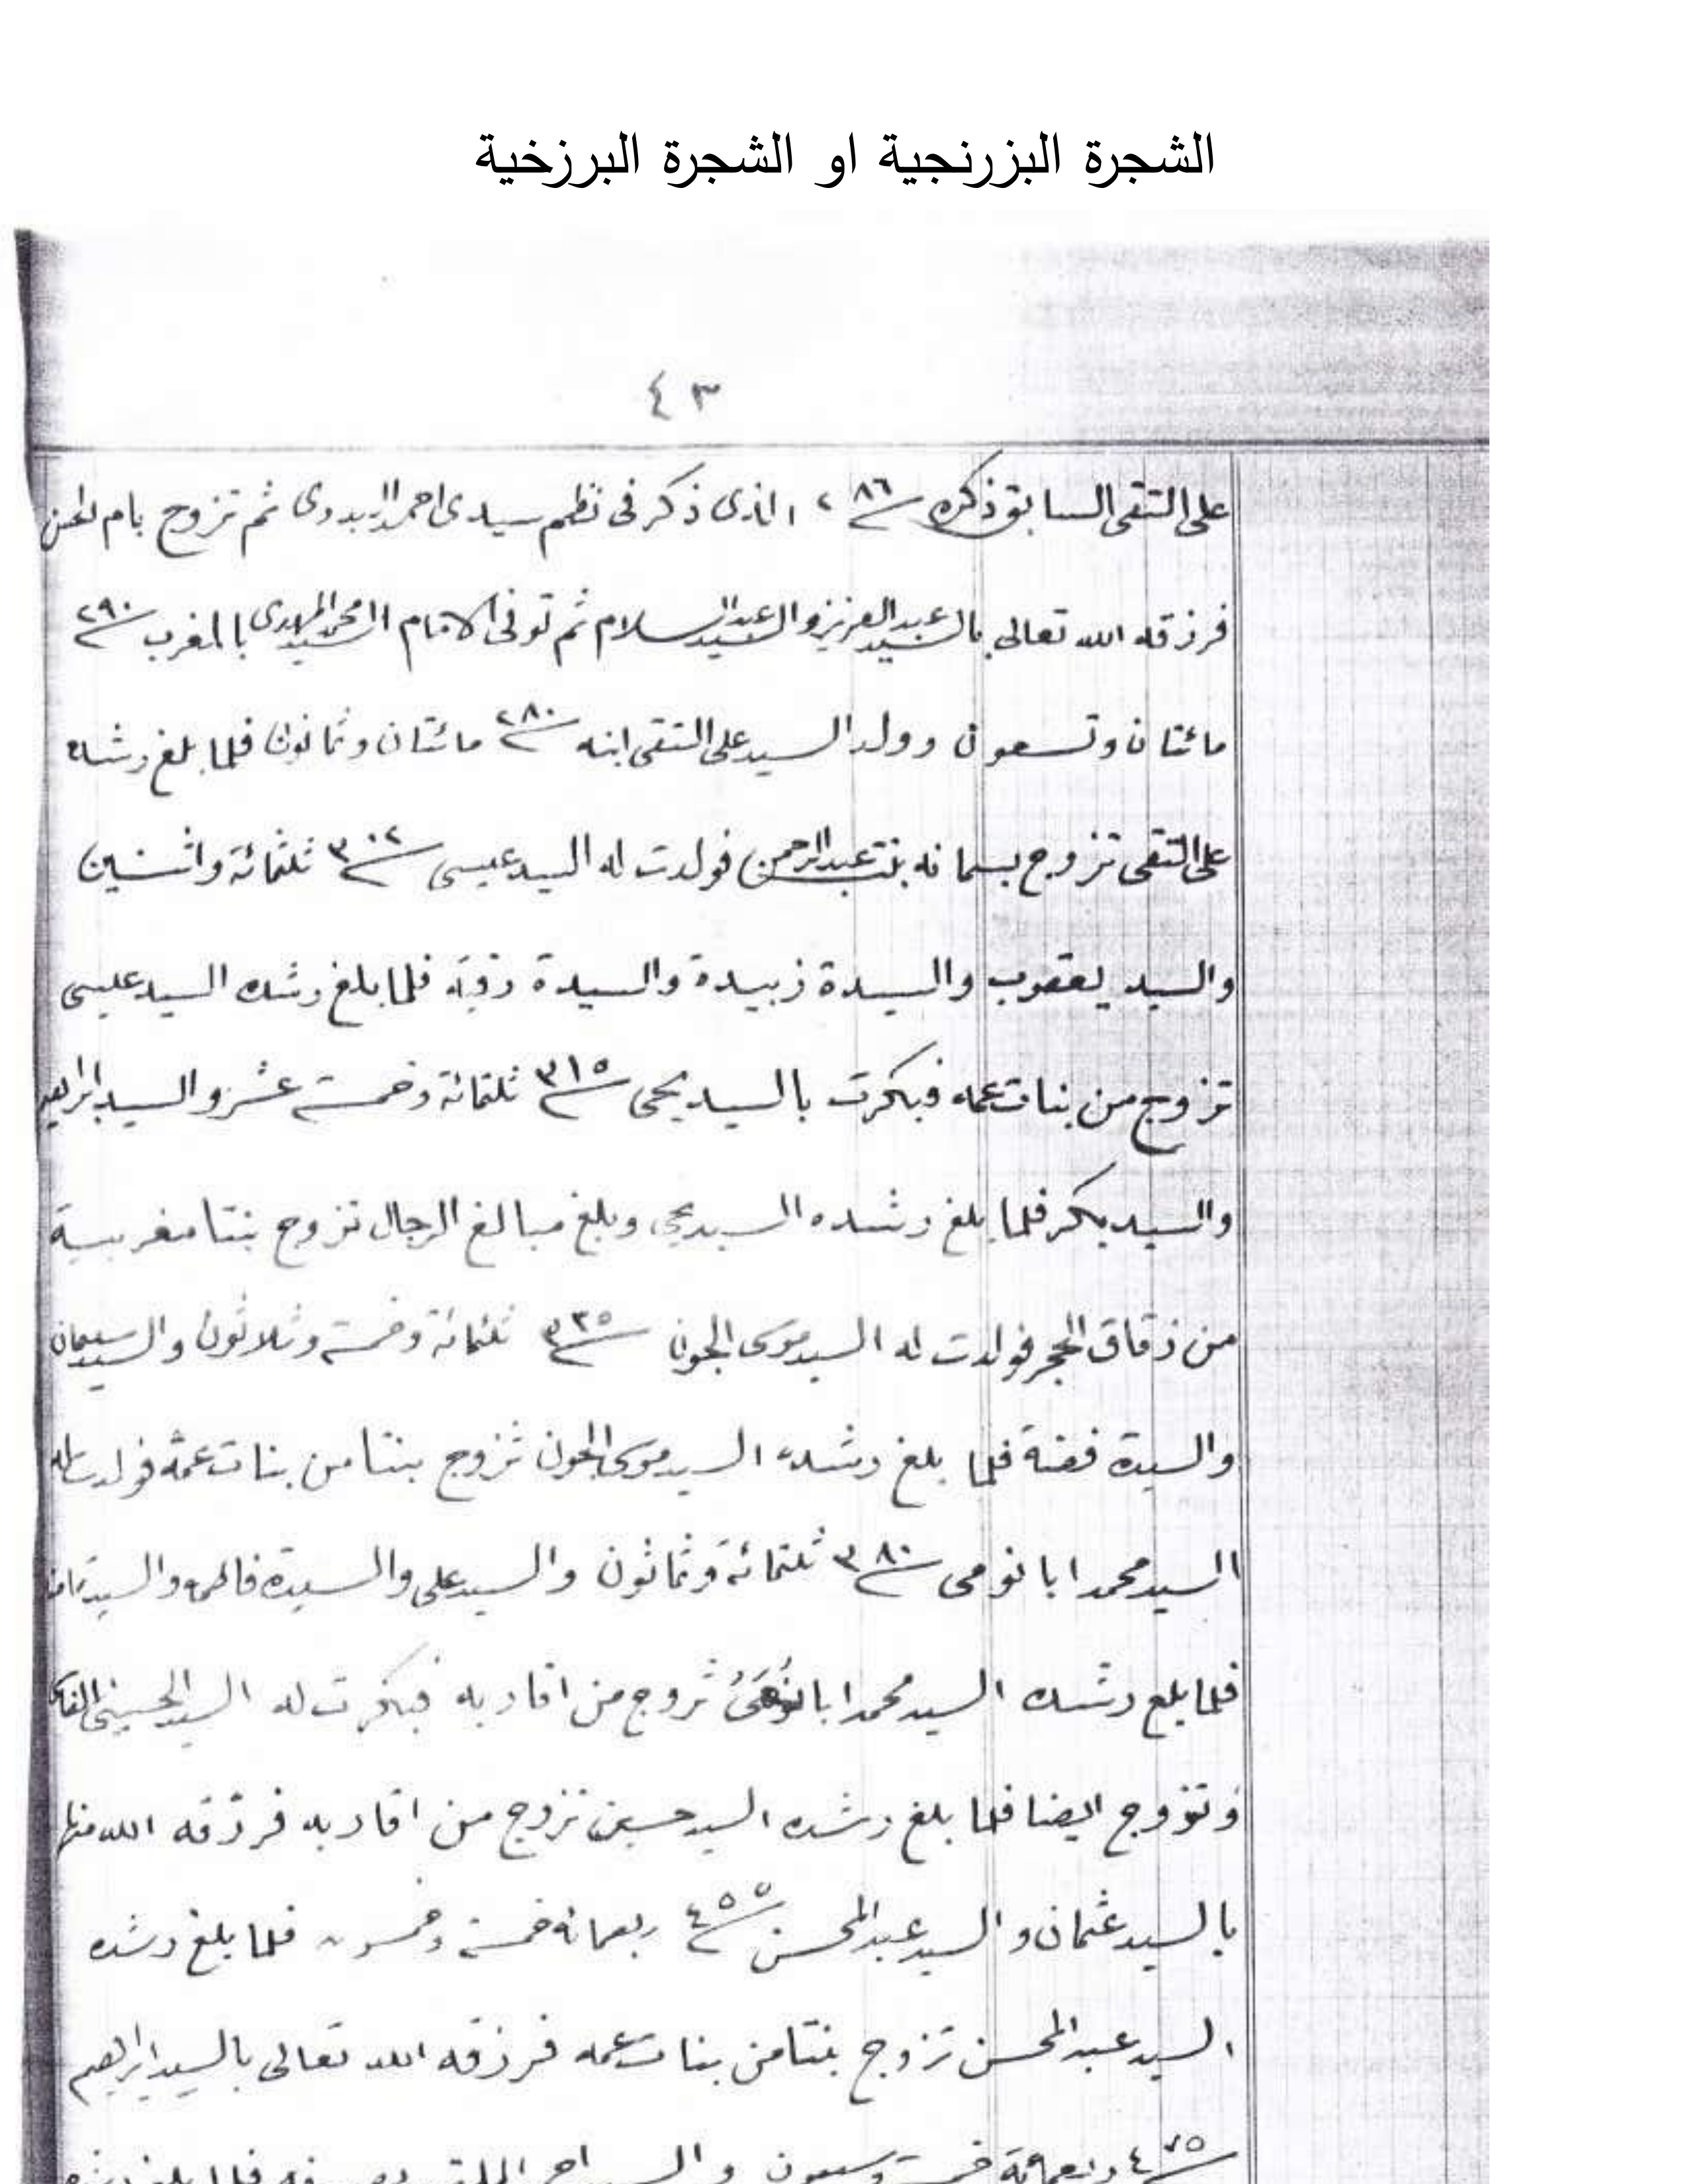 الشجرة البزرنجية او الشجرة البرزخية
٤٣
على التقى السابق ذكره ٢٨٦ الذى ذكر فى نظم سيدى احمد البدوى ثم تزوج بام الحسن
فرزقه الله تعالى بالسيد عبد العزيز والسيد عبد السلام ثم توفى الامام السيد محمد المهدى بالمغرب ٢٩٠
مائتان وتسعون وولد السيد على التقى ابنه ٢٨٠ مائتان وثمانون فلما بلغ رشده
على التقى تزوج بسمانه بنت عبد الرحمن فولدت له السيد عيسى ٣٠٢ ثلثمائة واثنين
والسيد يعقوب والسيدة زبيدة والسيدة رقية فلما بلغ رشده السيد عيسى
تزوج من بنات عمه فبكرت بالسيد يحى ٣١٥ ثلثمائة وخمسة عشر والسيد ابراهيم
والسيد بكر فلما بلغ رشده السيد يحى وبلغ مبالغ الرجال تزوج بنتا مغربية
من زقاق الحجر فولدت له السيد موسى الجون ٣٣٥ ثلثمائة وخمسة وثلاثون والسيد سليمان
والسيدة فضة فلما بلغ رشده السيد موسى الجون تزوج بنتا من بنات عمه فولدت له
السيد محمد ابا نومى ٣٨٠ ثلثمائة وثمانون والسيد على والسيدة فاطمه والسيد
فلما بلغ رشده السيد محمد ابا تزوج من اقاربه فبكرت له السيد الحسينى
وتزوج ايضا فلما بلغ رشده السيد حسين تزوج من اقاربه فرزقه الله منها
بالسيد عثمان والسيد عبد المحسن ٤٥٥ ربعمائة خمسة وخمسون فلما بلغ رشده
السيد عبد المحسن تزوج بنتا من بنات عمه فرزقه الله تعالى بالسيد ابراهيم
٤٧٥